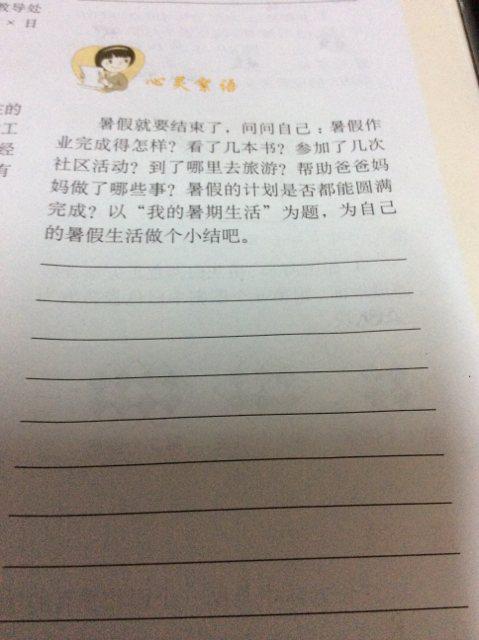 教导处
× 日
心灵絮语
在的
工
经
有
暑假就要结束了，问问自己：暑假作
业完成得怎样？看了几本书？参加了几次
社区活动？到了哪里去旅游？帮助爸爸妈
妈做了哪些事？暑假的计划是否都能圆满
完成？以“我的暑期生活”为题，为自己
的暑假生活做个小结吧。